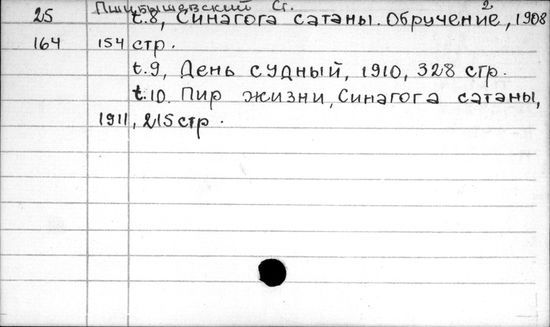 Пшибышевский Ст. 2
25 t.8, Синагога сатаны. Обручение, 1908
164 154 стр.
t.9, День судный, 1910, 328 стр.
t.10. Пир жизни, Синагога сатаны,
1911, 215 стр.